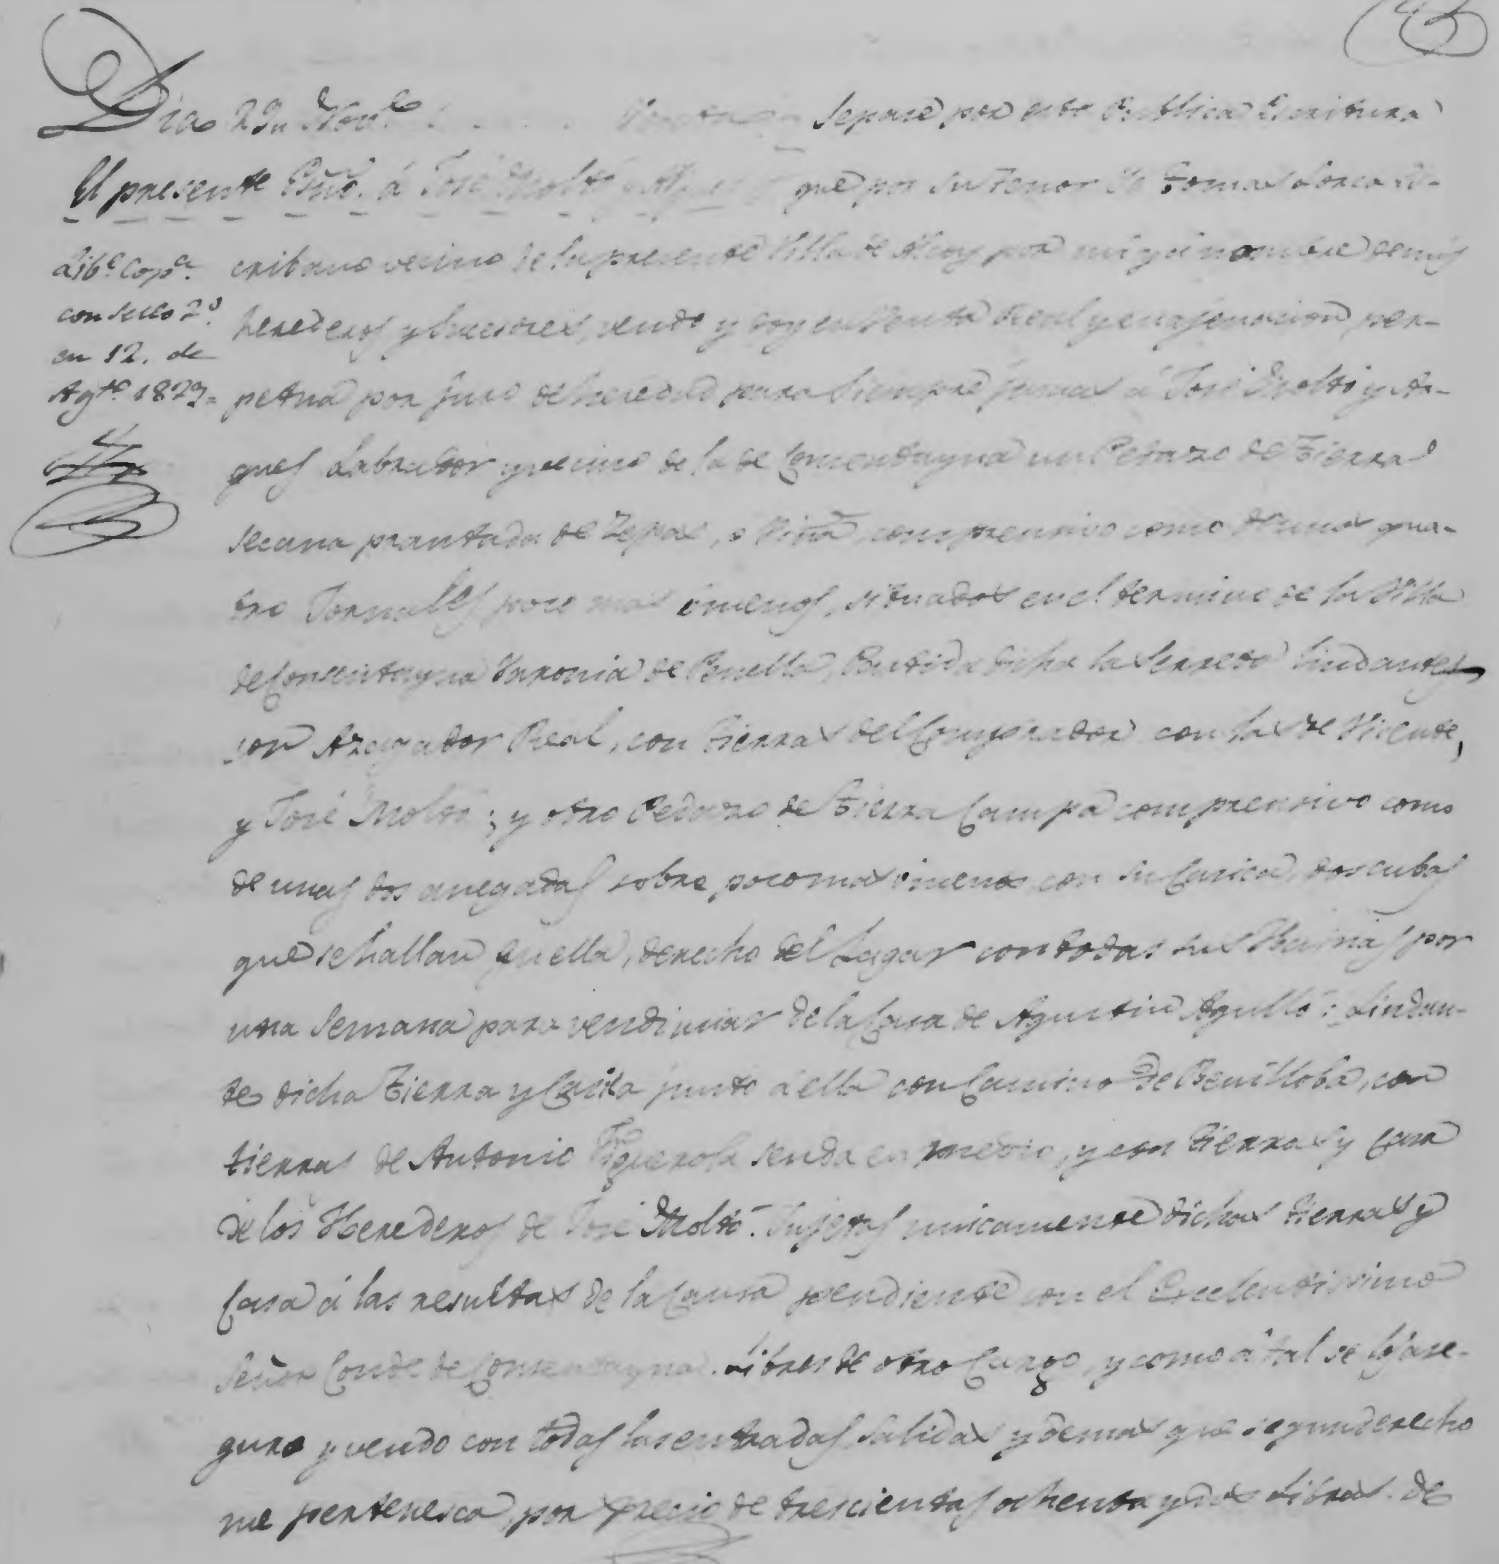 Dia 29 Nov.e Venta Sepase por esta Publica Escritura
El presente Esno. á José Moltó y que por su tenor Yo Tomas Lorca Es-
Libe. Copa. cribano vecino de la presente Villa de Alcoy por mi y à nombre de mis
con sello 2º. herederos y succesores, vendo y doy en Venta Real y enajenacion per-
en 12. de
Agto. 1829. petua por juro de heredad para siempre jamas á José Moltó y Ar-
ques Labrador y vecino de la de Cosentayna un Pedazo de Tierra
secana prantada de Zepas, o Viña, comprensivo como de unos qua-
tro Jornales poco mas ó menos, situados en el termino de la Villa
de Cosentayna Varonia de Penella, Partida dicha la Serreta lindantes
con Azagador Real, con tierras del Comprador con las de Vicente,
y José Moltó; y otro Pedazo de Tierra Campa comprensivo como
de unas dos anegadas sobre poco mas ó menos con su Casica, dos cubas
que se hallan en ella, derecho del Lagar con todas sus por
una semana para vendimiar de la Casa de Agustin Agulló: Lindan-
te dicha Tierra y Casita junto á ella con Camino de Benilloba, con
tierras de Antonio Figuerola senda en medio, y con tierras y casa
de los Herederos de José Moltó. Sujetas unicamente dichas tierras y
Casa á las resultas de la Causa pendiente con el Excelentissimo
Señor Conde de Cosentayna. Libres de otro Cargo, y como á tal se lo ase-
guro y vendo con todas las entradas, salidas y demas que segun derecho
me pertenesca, por precio de trescientas ochenta y dos Libras. de